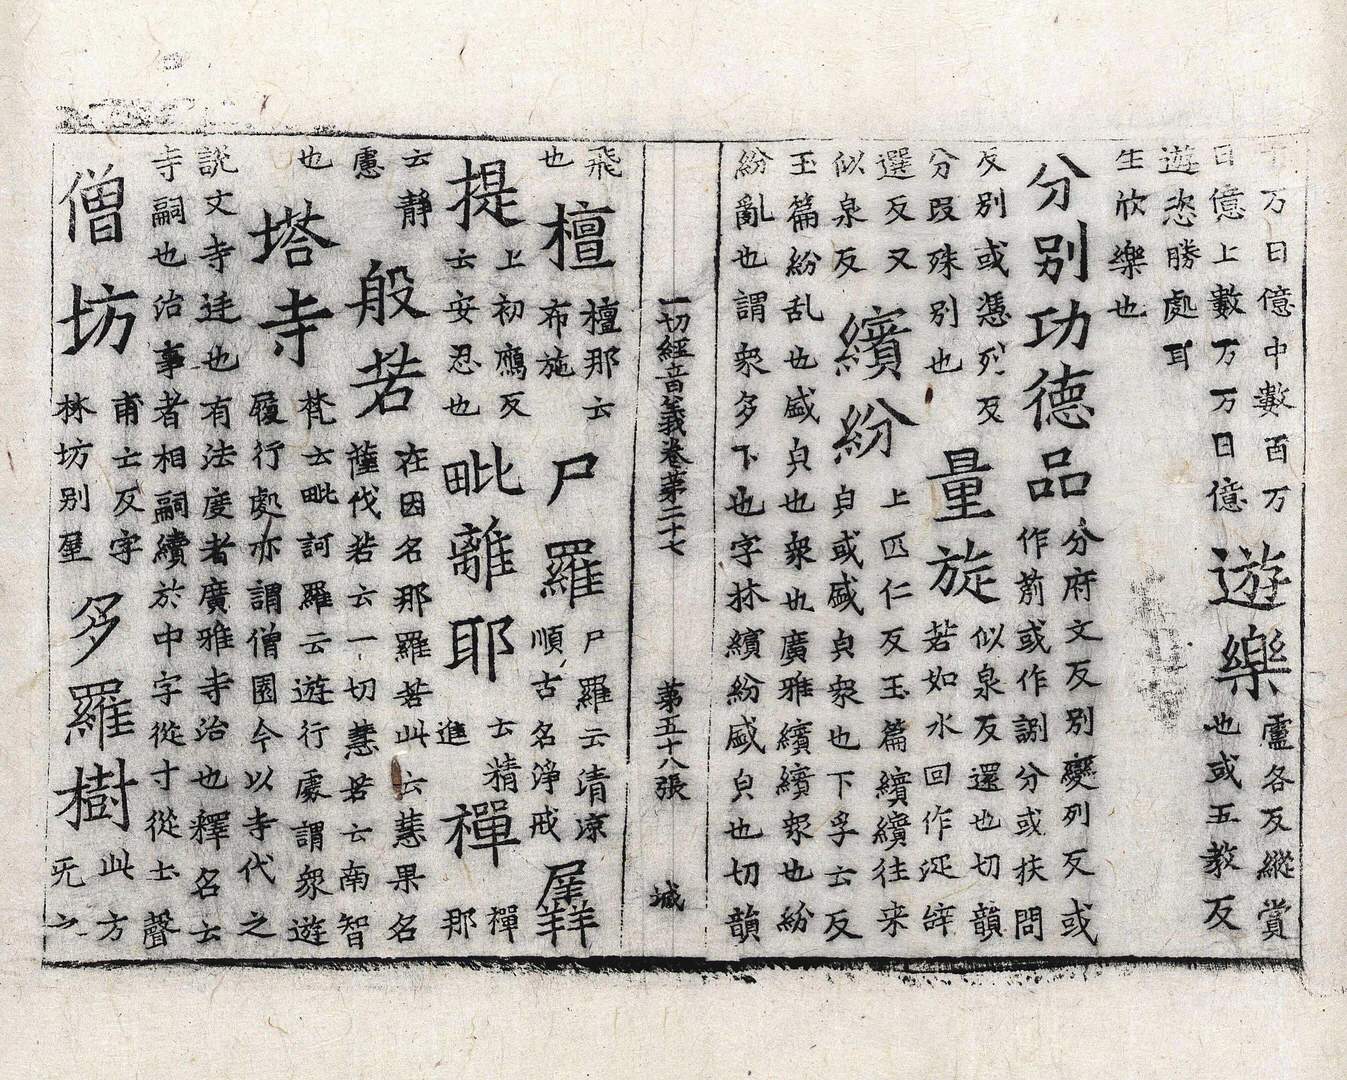 十万曰億中數百万
曰億上數万万曰億
遊樂
盧各反縱賞
也或五教反
遊恣勝處耳
生欣樂也
分別功德品
分府文反別變列反或
作莂或作䚹分或扶問
反別或憑列反
分段殊別也
量旋
似泉反還也切韻
若如水回作㳬辝
選反又
似泉反
繽紛
上匹仁反玉篇繽繽往来
皃或盛皃衆也下孚云反
玉篇紛乱也盛皃也衆也廣雅繽繽衆也紛
紛亂也謂衆多下也字林繽紛盛皃也切韻
一切經音義卷第二十七 第五十八張 城
飛
也
檀
檀那云
布施
尸羅
尸羅云清凉
順古名淨戒
羼
提
上初鴈反
云安忍也
毗離耶
云精
進
禪
禪
那
云靜
慮
般若
在因名那羅若此云慧果名
薩伐若云一切慧若云南智
也
塔寺
梵云毗訶羅云遊行處謂衆遊
履行處亦謂僧園今以寺代之
說文寺廷也有法度者廣雅寺治也釋名云
寺嗣也治事者相嗣續於中字從寸從㞢聲
僧坊
甫亡反字
林坊別屋
多羅樹
此方
旡之